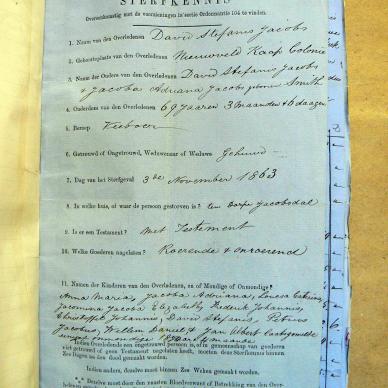 STERFKENNIS
Overeenkomstig met de voorzieningen in sectie Ordonnantie 104 te vinden.
1. Naam van den Overledenen David Stefanus Jacobs
2. Geboorteplaats van den Overledenen Nieuwveld Kaap Colonie
3. Naam der Ouders van den Overledenen David Stefanus Jacobs
& Jacoba Adriana Jacobs geboren Smith
4. Ouderdom van den Overledenen 69 jaaren 3 maanden & 6 daagen
5. Beroep Veeboer
6. Getrouwd of Ongetrouwd, Weduwnaar of Weduwe Gehuwd
7. Dag van het Sterfgeval 3de November 1863
8. In welke huis, of waar de persoon gestorven is? ten dorpe Jacobsdal
9. Is er een Testament? Met Testement
10. Welke Goederen nagelaten? Roerende & onroerend
11. Namen der Kinderen van den Overledenen, en of Mundige of Onmondige?
Anna Maria, Jacoba Adriana, Louisa
Jacomina Jacoba Elizabeth, Frederik Johannis,
Christoffel Johannis, David Stefanus, Petrus
Jacobus, Willem Daniel & Jan Albert
onmondige maande
Indien Overledene een ongetrouwd persoon is, of in gemeenschap van goederen
niet getrouwd of geen Testament nagelaten heeft, moeten deze Sterfkennis binnen
Zes Dagen na den dood gemaakt worden.
Indien anders, dezelve moet binnen Zes Weken gemaakt worden.
Dezelve moet door den naasten Bloedverwant of Betrekking van den Over-